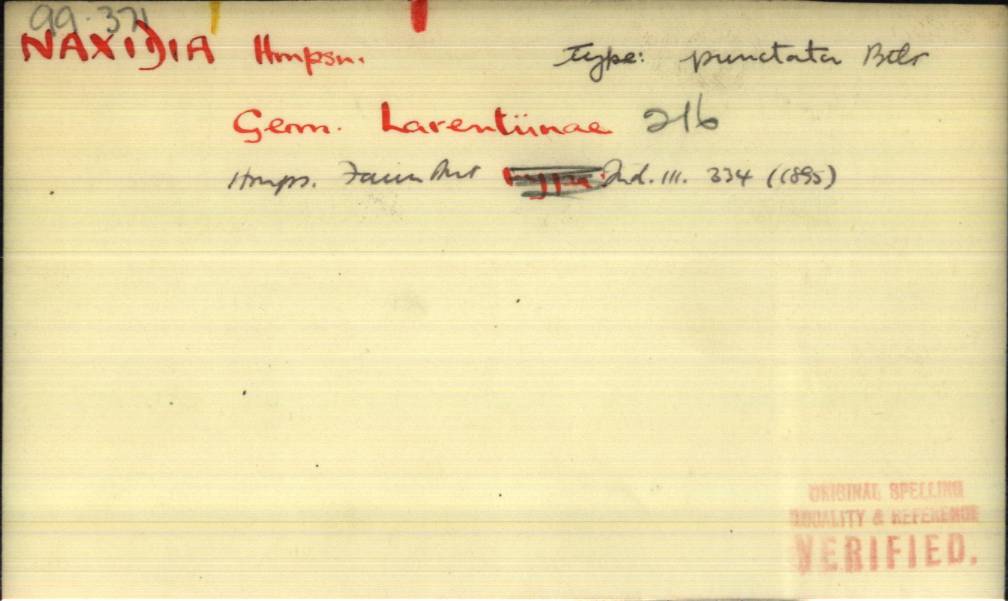 99.371
NAXIDIA Hmpsn. Type: punctata Btlr
Geom. Larentiinae 216
Hmps. Faun Brit Ind. III. 334 (1895)
ORIGINAL SPELLING
LOCALITY & REFERENCE
VERIFIED.